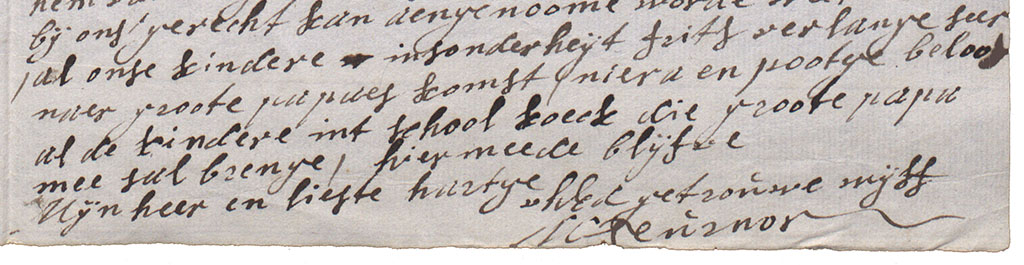 bij ons gerecht kan aengenoome worde
al onse kindere insonderheyt frits verlange seer
naer groote papaes komst, niera en pootye beloof
al de kindere int school koeck die groote papa
mee sal brenge, hiermeede blijfve
Mijn heer en lieste hartye uwEd getrouwe wijff